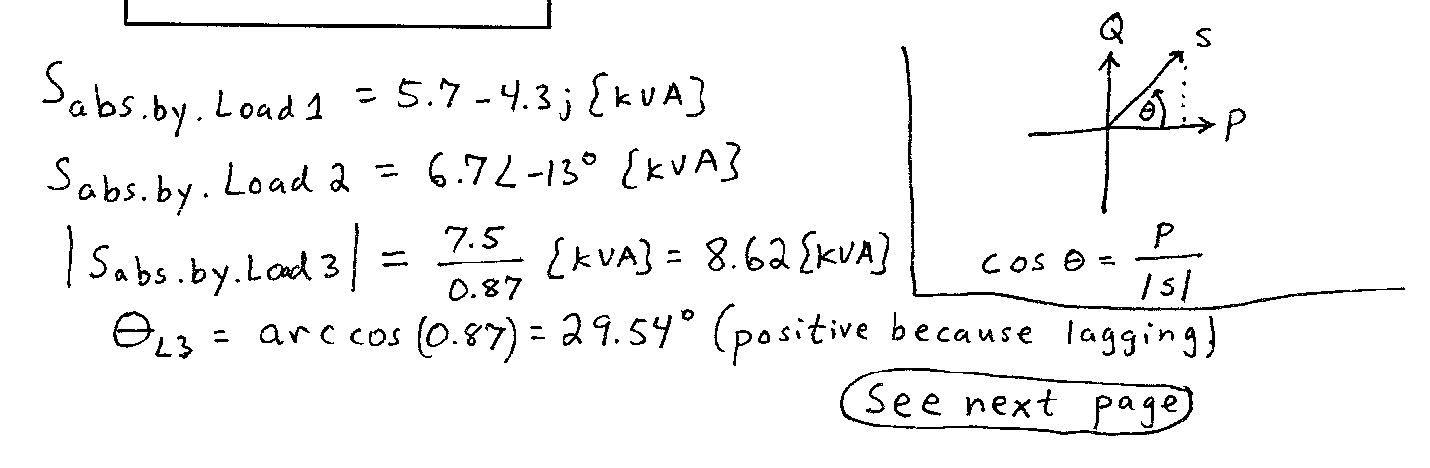 S abs.by.Load 1 = 5.7 - 4.3j {kVA}
S abs.by.Load 2 = 6.7∠-13° {kVA}
|S abs.by.Load 3| = 7.5/0.87 {kVA} = 8.62 {kVA}
θL3 = arccos(0.87) = 29.54° (positive because lagging)
Q
S
θ
P
cos θ = P/|S|
See next page